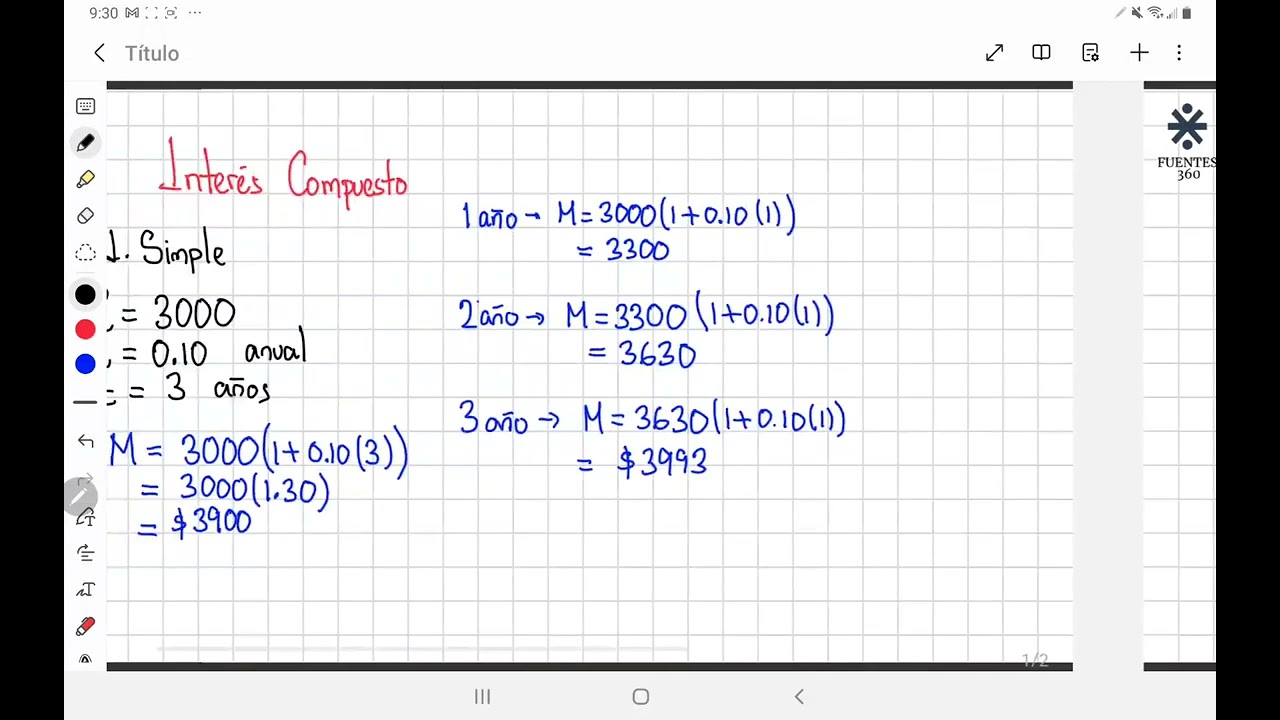 9:30
Título
FUENTES
360
Interés Compuesto
1. Simple
= 3000
= 0.10 anual
= 3 años
M = 3000(1+0.10(3))
= 3000(1.30)
= $3900
1 año → M = 3000(1+0.10(1))
= 3300
2 año → M = 3300(1+0.10(1))
= 3630
3 año → M = 3630(1+0.10(1))
= $3993
1/2